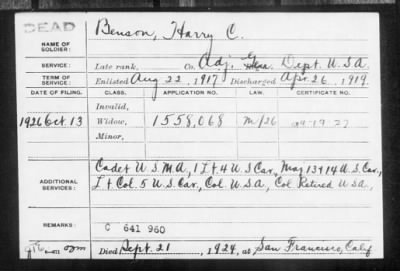 DEAD
Benson, Harry C.
NAME OF SOLDIER:
SERVICE: Late rank, Co. Adj. Gen. Dept. U.S.A.
TERM OF SERVICE: Enlisted Aug 22, 1917 Discharged Apr. 26, 1919.
DATE OF FILING. CLASS. APPLICATION NO. LAW. CERTIFICATE NO.
Invalid,
1926 Oct. 13 Widow, 1558,068 M/26
Minor,
ADDITIONAL SERVICES:
Cadet U.S.M.A., 1 Lt. 4 U.S. Cav., Maj 13 & 14 U.S. Cav.,
Lt Col. 5 U.S. Cav., Col. U.S.A., Col Retired U.S.A.,
REMARKS: C 641 960
Died Sept. 21, 1924, at San Francisco, Calif